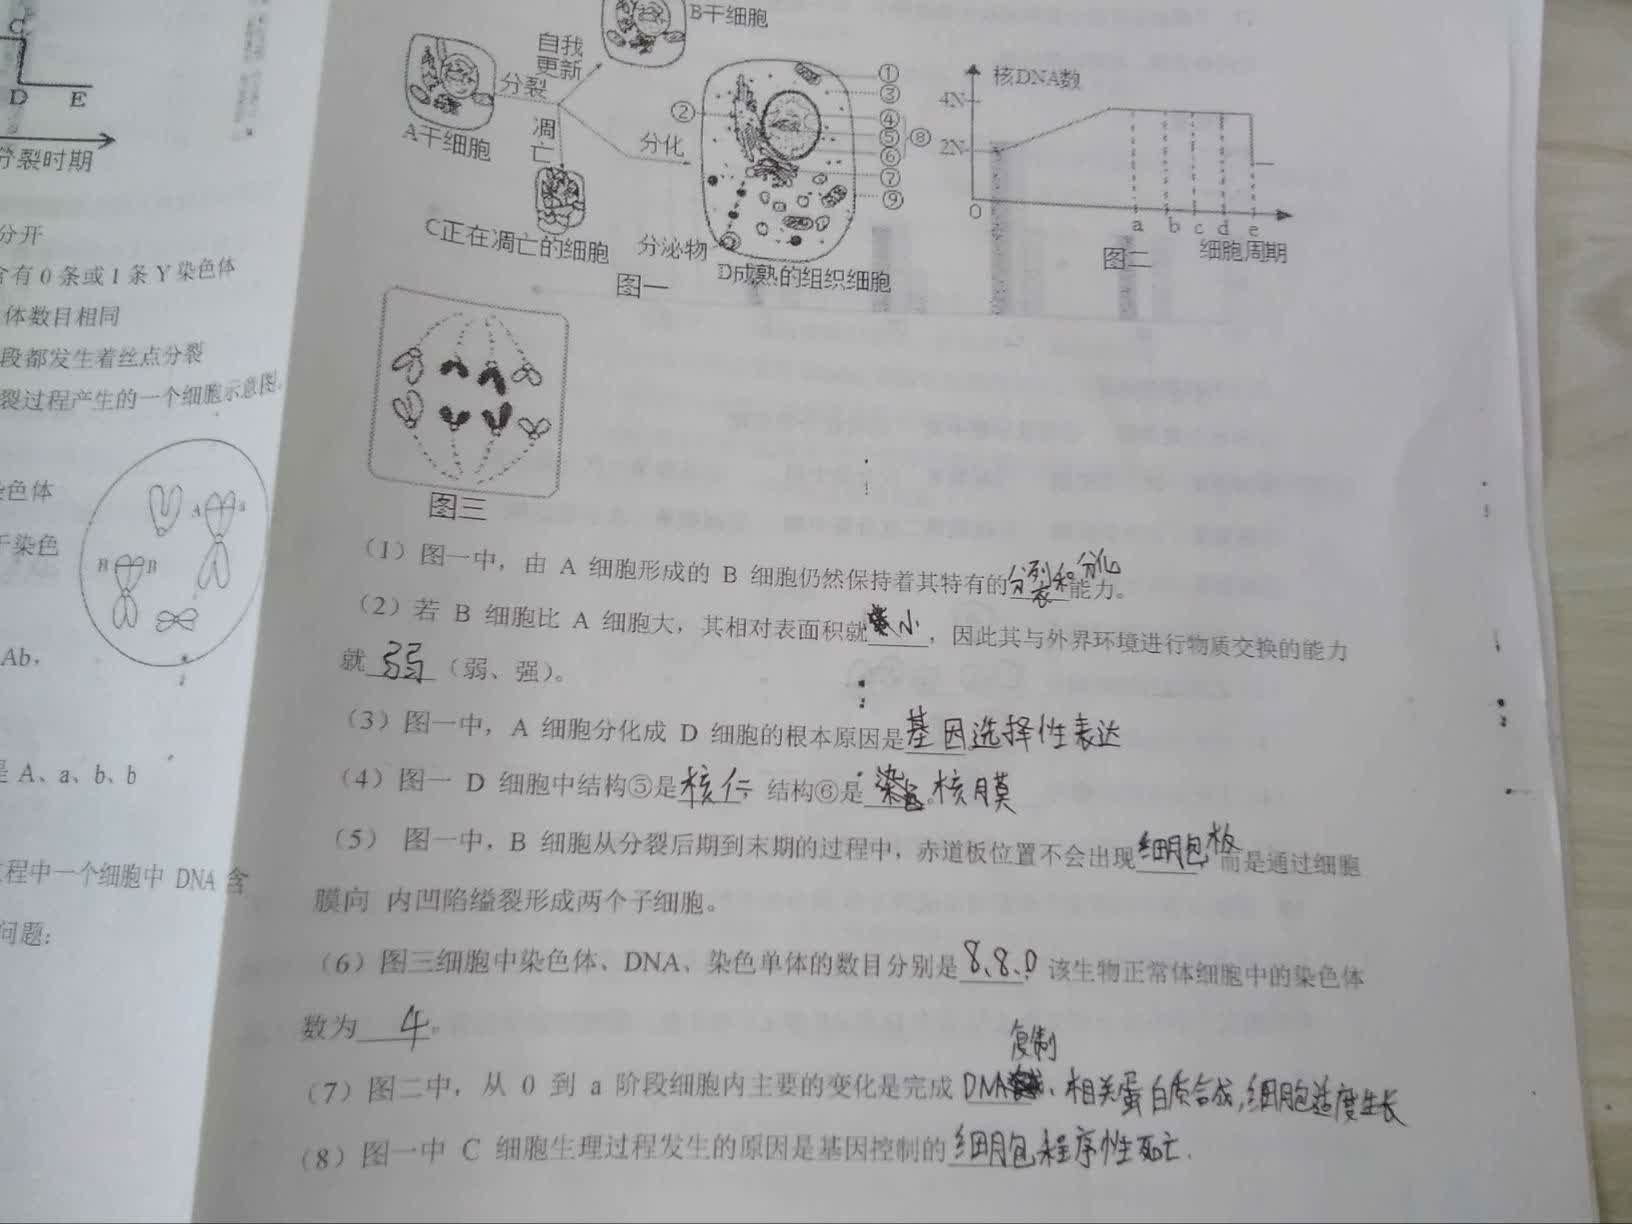 C
D E
分裂时期
分开
含有 0 条或 1 条 Y 染色体
体数目相同
段都发生着丝点分裂
裂过程产生的一个细胞示意图.
染色体
于染色
A a
B B
Ab,
是 A、a、b、b
程中一个细胞中 DNA 含
问题:
B干细胞
自我
更新
分裂
A干细胞
凋
亡
分化
C正在凋亡的细胞
分泌物
D成熟的组织细胞
①
②
③
④
⑤
⑥
⑦
⑧
⑨
图一
核DNA数
4N
2N
O
a b c d e
图二 细胞周期
图三
(1) 图一中，由 A 细胞形成的 B 细胞仍然保持着其特有的分裂和分化能力。
(2) 若 B 细胞比 A 细胞大，其相对表面积就小，因此其与外界环境进行物质交换的能力
就 弱 (弱、强)。
(3) 图一中，A 细胞分化成 D 细胞的根本原因是基因选择性表达
(4) 图一 D 细胞中结构⑤是核仁，结构⑥是核膜
(5) 图一中，B 细胞从分裂后期到末期的过程中，赤道板位置不会出现细胞板而是通过细胞
膜向 内凹陷缢裂形成两个子细胞。
(6) 图三细胞中染色体、DNA、染色单体的数目分别是8、8、0，该生物正常体细胞中的染色体
数为 4 。
(7) 图二中，从 0 到 a 阶段细胞内主要的变化是完成 DNA复制、相关蛋白质合成,细胞适度生长
(8) 图一中 C 细胞生理过程发生的原因是基因控制的细胞程序性死亡.